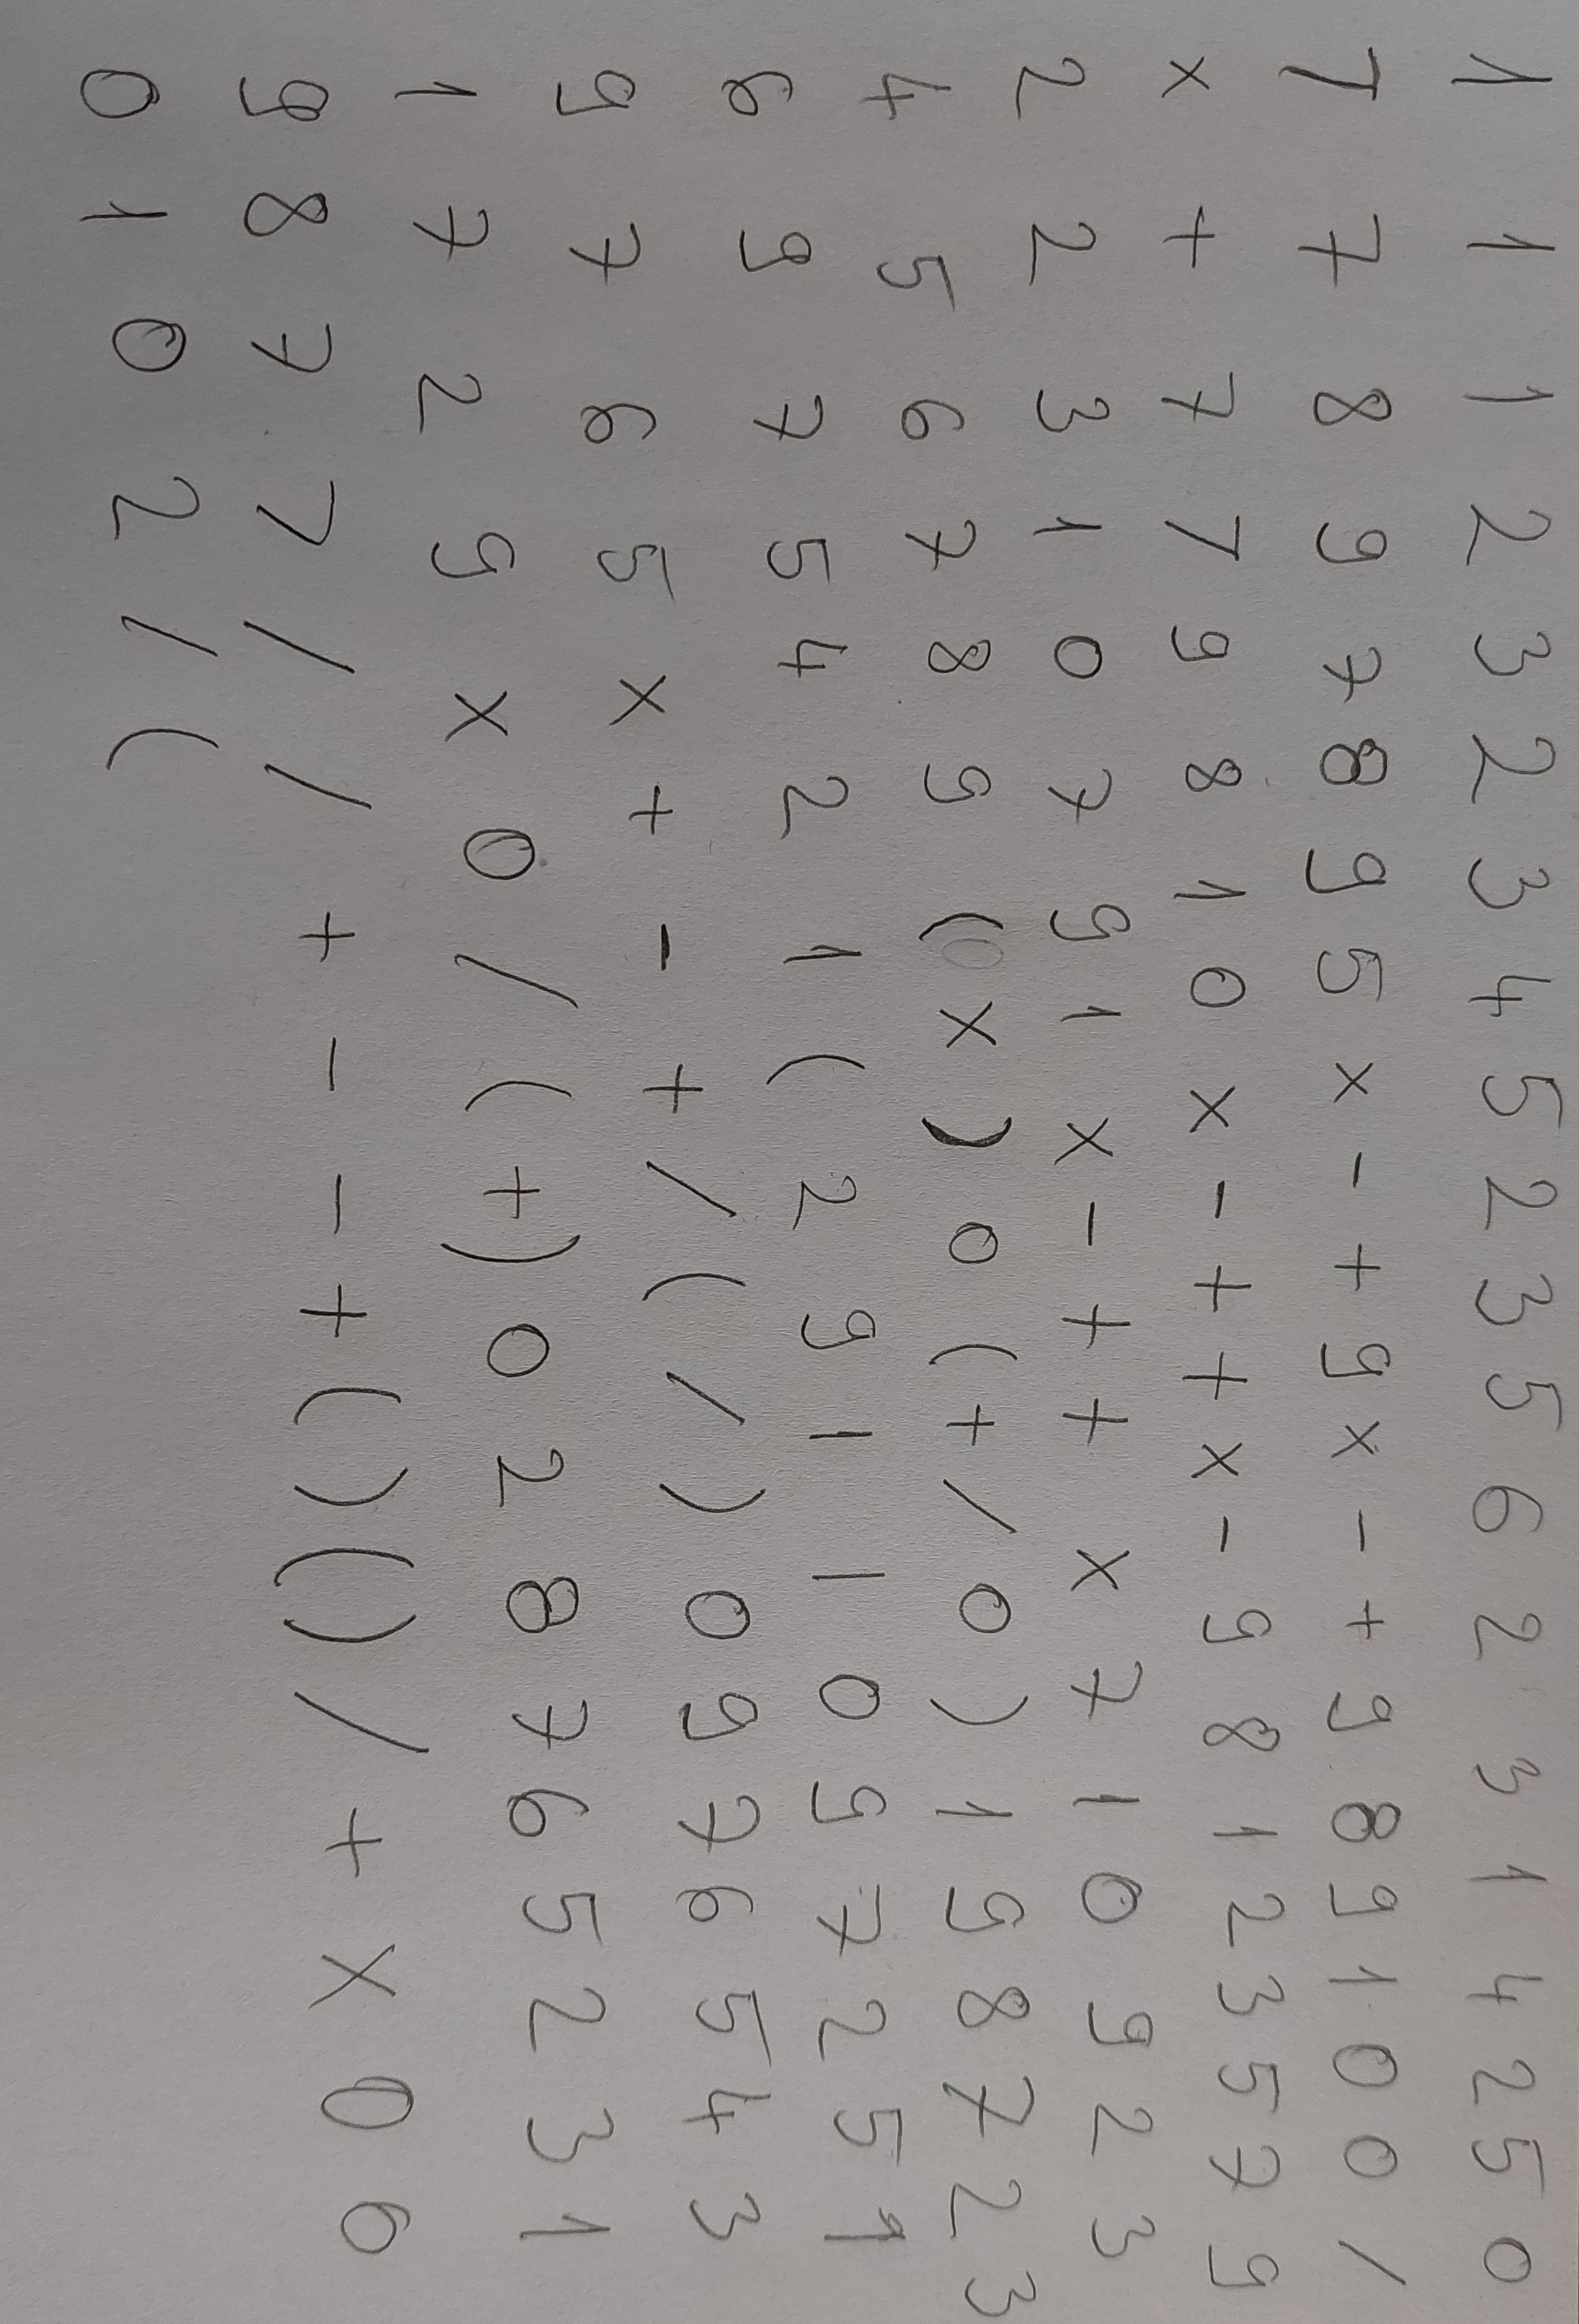 1 1 1 2 3 2 3 4 5 2 3 5 6 2 3 1 4 2 5 0
7 7 8 9 7 8 9 5 x - + 9 x - + 9 8 9 1 0 0 /
x + 7 7 9 8 1 0 x - + + x - 9 8 1 2 3 5 7 9
2 2 3 1 0 7 9 1 x - + + x 7 1 0 9 2 3
4 5 6 7 8 9 ( x ) 0 ( + / 0 ) 1 9 8 7 2 3
6 9 7 5 4 2 1 ( 2 9 1 1 0 9 7 2 5 1
9 7 6 5 x + - + / ( / ) 0 9 7 6 5 4 3
1 7 2 9 x 0 / ( + ) 0 2 8 7 6 5 2 3 1
9 8 7 7 / / + - - + ( ) ( ) / + x 0 6
0 1 0 2 / (